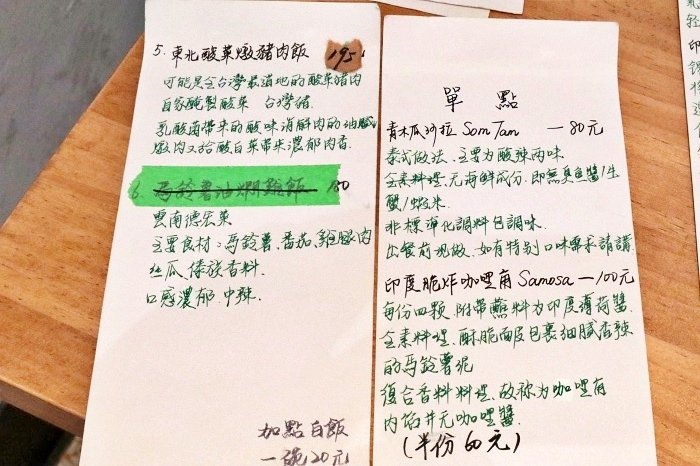 5. 東北酸菜燉豬肉飯 195
可能是全台灣最道地的酸菜豬肉
自家醃製酸菜 台灣豬.
乳酸菌帶来的酸味消解肉的油膩
燉肉又給酸白菜带来濃郁肉香.
6. 馬鈴薯油燜雞飯 180
雲南德宏菜
主要食材：馬鈴薯.番茄.雞腿肉
丝瓜.傣族香料.
口感濃郁.中辣.
加點白飯
一碗20元
單 點
青木瓜沙拉 Som Tam —80元
泰式做法、主要为酸辣两味
全素料理、无海鮮成分.即無魚醬/生
蟹/蝦米.
非標準化調料包調味.
出餐前现做.如有特别口味需求請講.
印度脆炸咖哩角 Samosa —100元
每份四颗.附带蘸料为印度薄荷醬.
全素料理、酥脆面皮包裹细膩香辣
的馬鈴薯泥
復合香料料理、故称为咖哩角
内馅并无咖哩醬.
(半份60元)